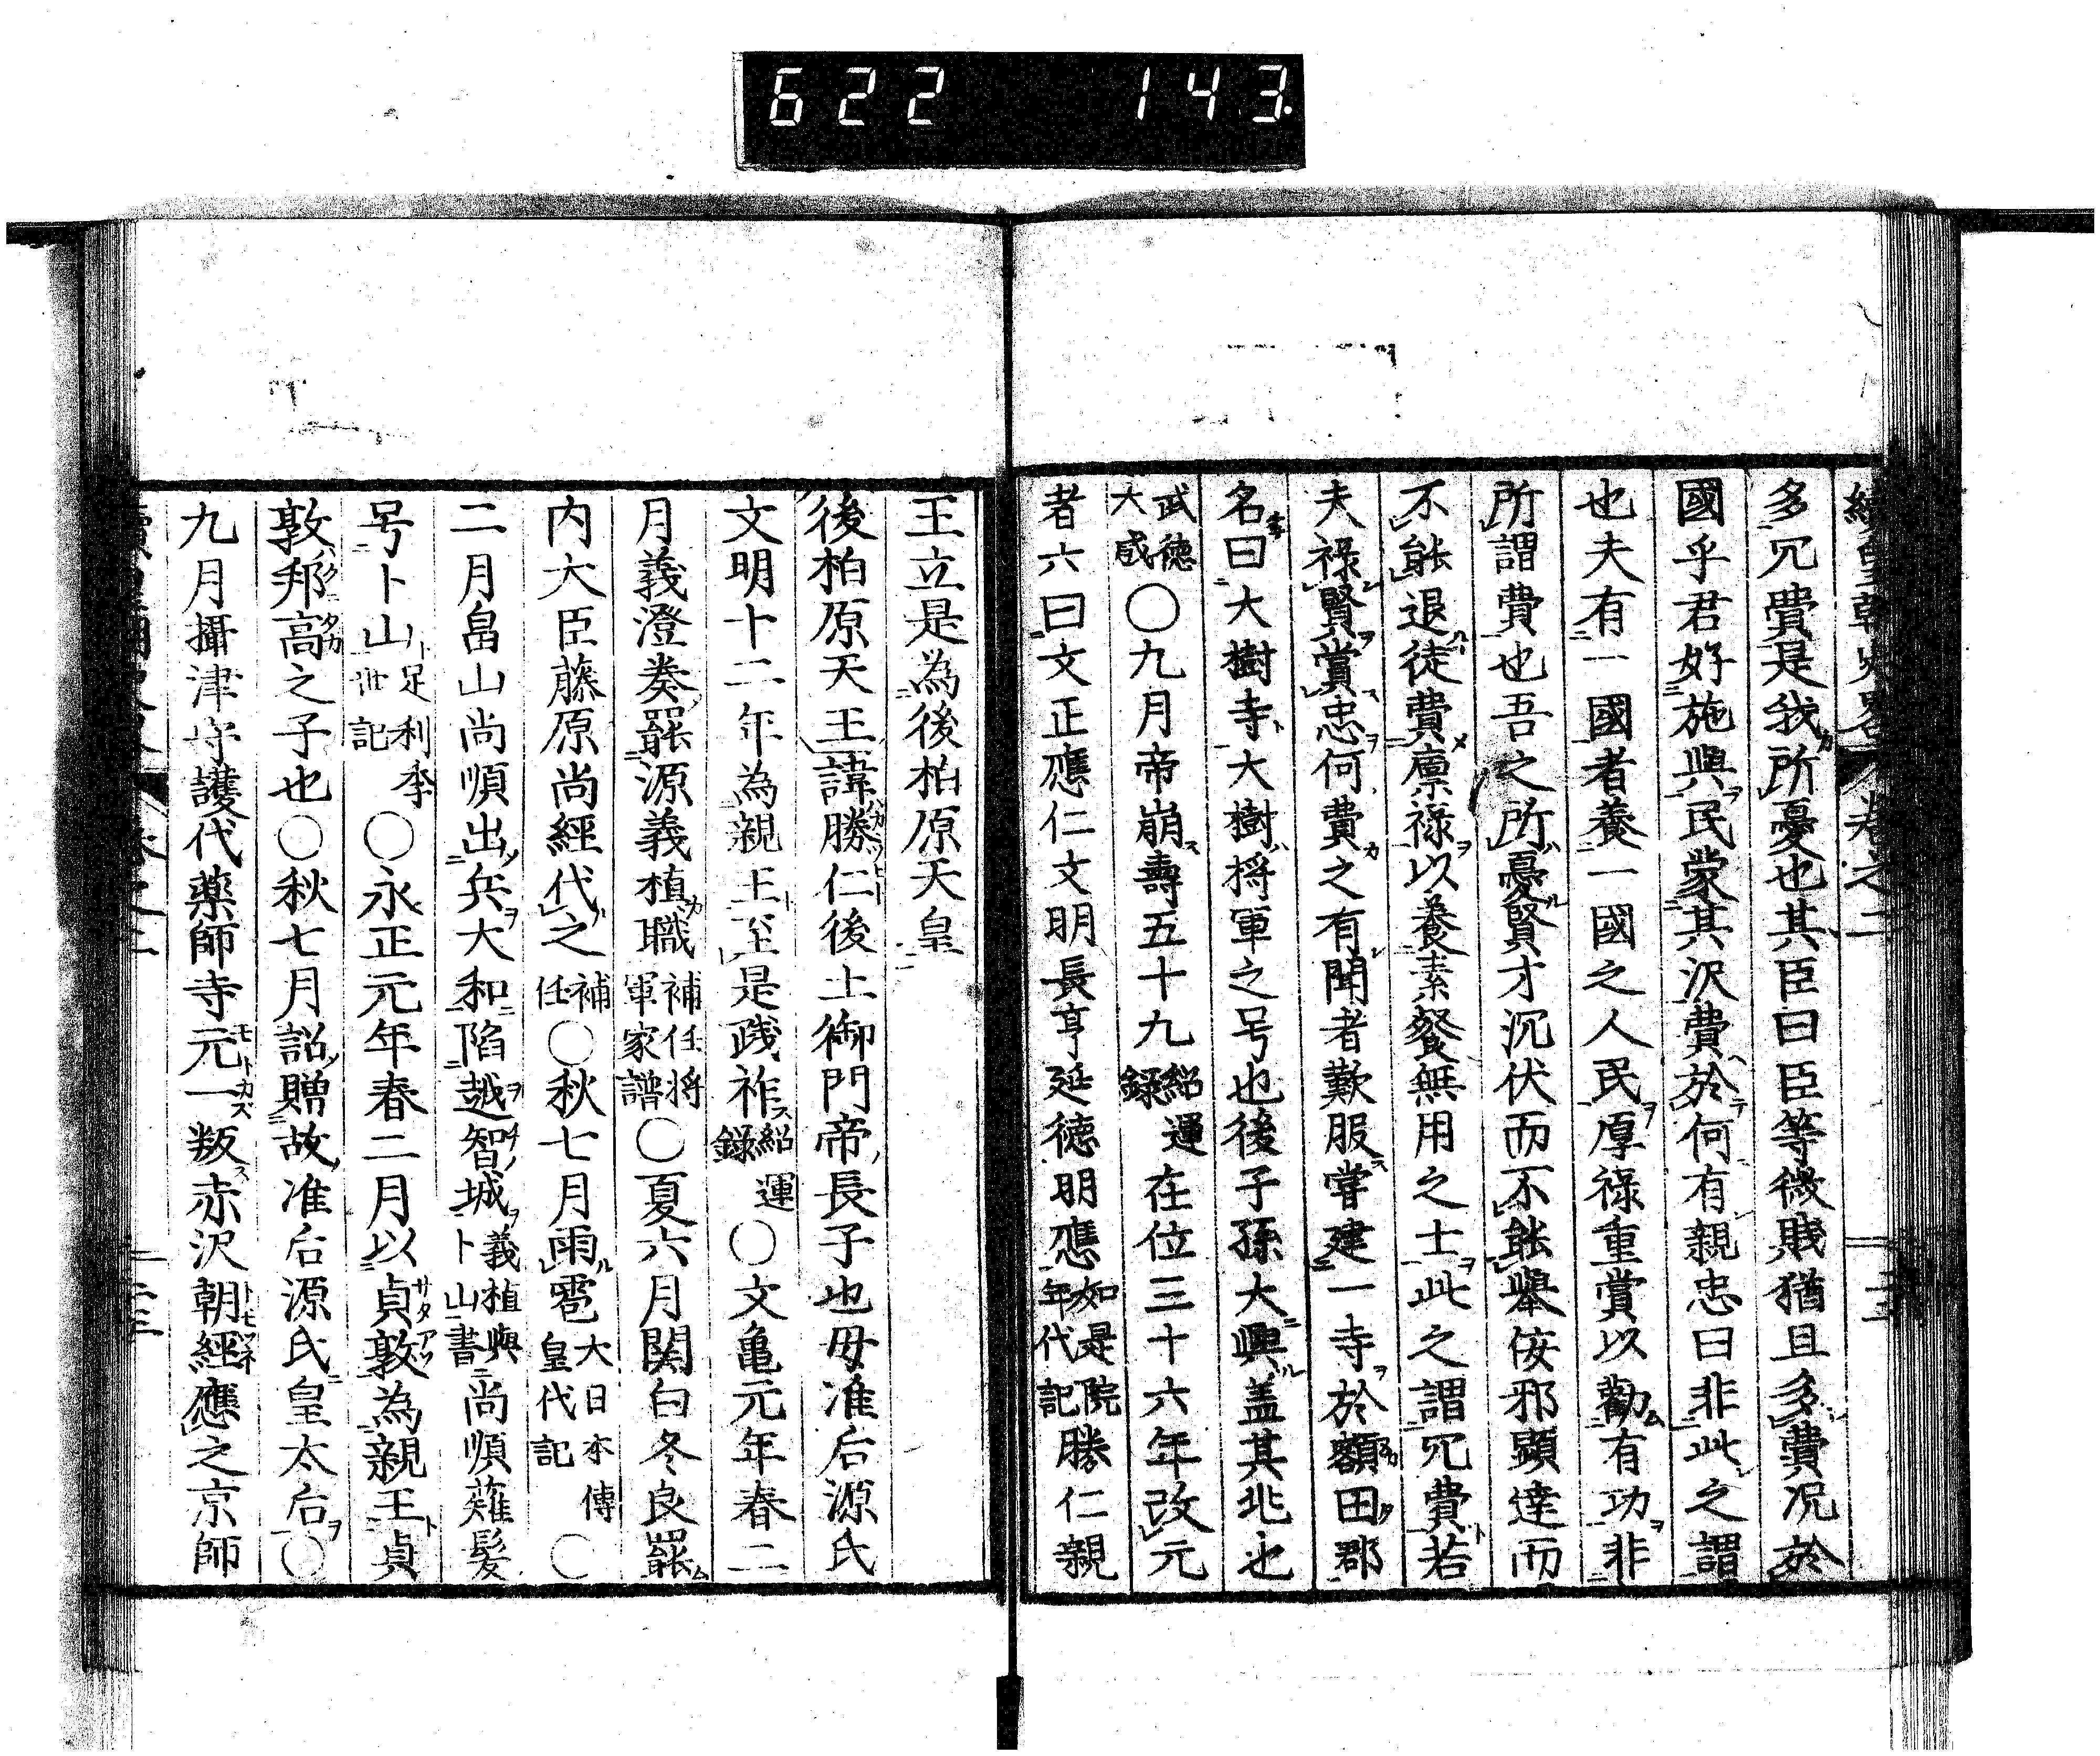 622 143.
續皇朝史畧 卷之二
多冗費是我所憂也其臣曰臣等微賤猶且多費况於
國乎君好施與民蒙其沢費於何有親忠曰非此之謂
也夫有一國者養一國之人民厚禄重賞以勸有功非
所謂費也吾之所憂賢才沉伏而不能舉侫邪顕達而
不能退徒費廩禄以養素餐無用之士此之謂冗費若
夫禄賢賞忠何費之有聞者歎服嘗建一寺於額田郡
名曰大樹寺大樹将軍之号也後子孫大興盖其兆也
武德大成〇九月帝崩壽五十九紹運録在位三十六年改元
者六曰文正應仁文明長亨延德明應如是院年代記勝仁親
王立是為後柏原天皇
後柏原天王諱勝仁後土御門帝長子也母准后源氏
文明十二年為親王至是踐祚紹運録〇文亀元年春二
月義澄奏罷源義植職補任将軍家譜〇夏六月関白冬良罷
内大臣藤原尚經代之補任〇秋七月雨雹大日本傳皇代記〇
二月畠山尚順出兵大和陷越智城義植與卜山書尚順薙髪
号卜山足利季世記〇永正元年春二月以貞敦為親王貞
敦邦高之子也〇秋七月詔贈故准后源氏皇太后〇
九月攝津守護代薬師寺元一叛赤沢朝經應之京師